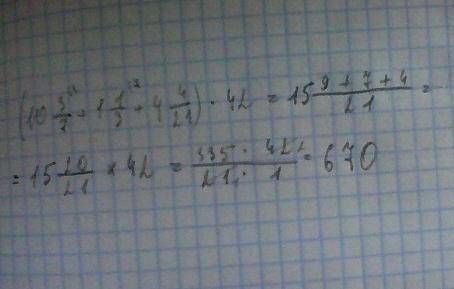 (10 3/7 + 1 1/3 + 4 4/21) · 42 = 15 9 + 7 + 4/21 =
= 15 20/21 × 42 = 335 · 42/21 · 1 = 670